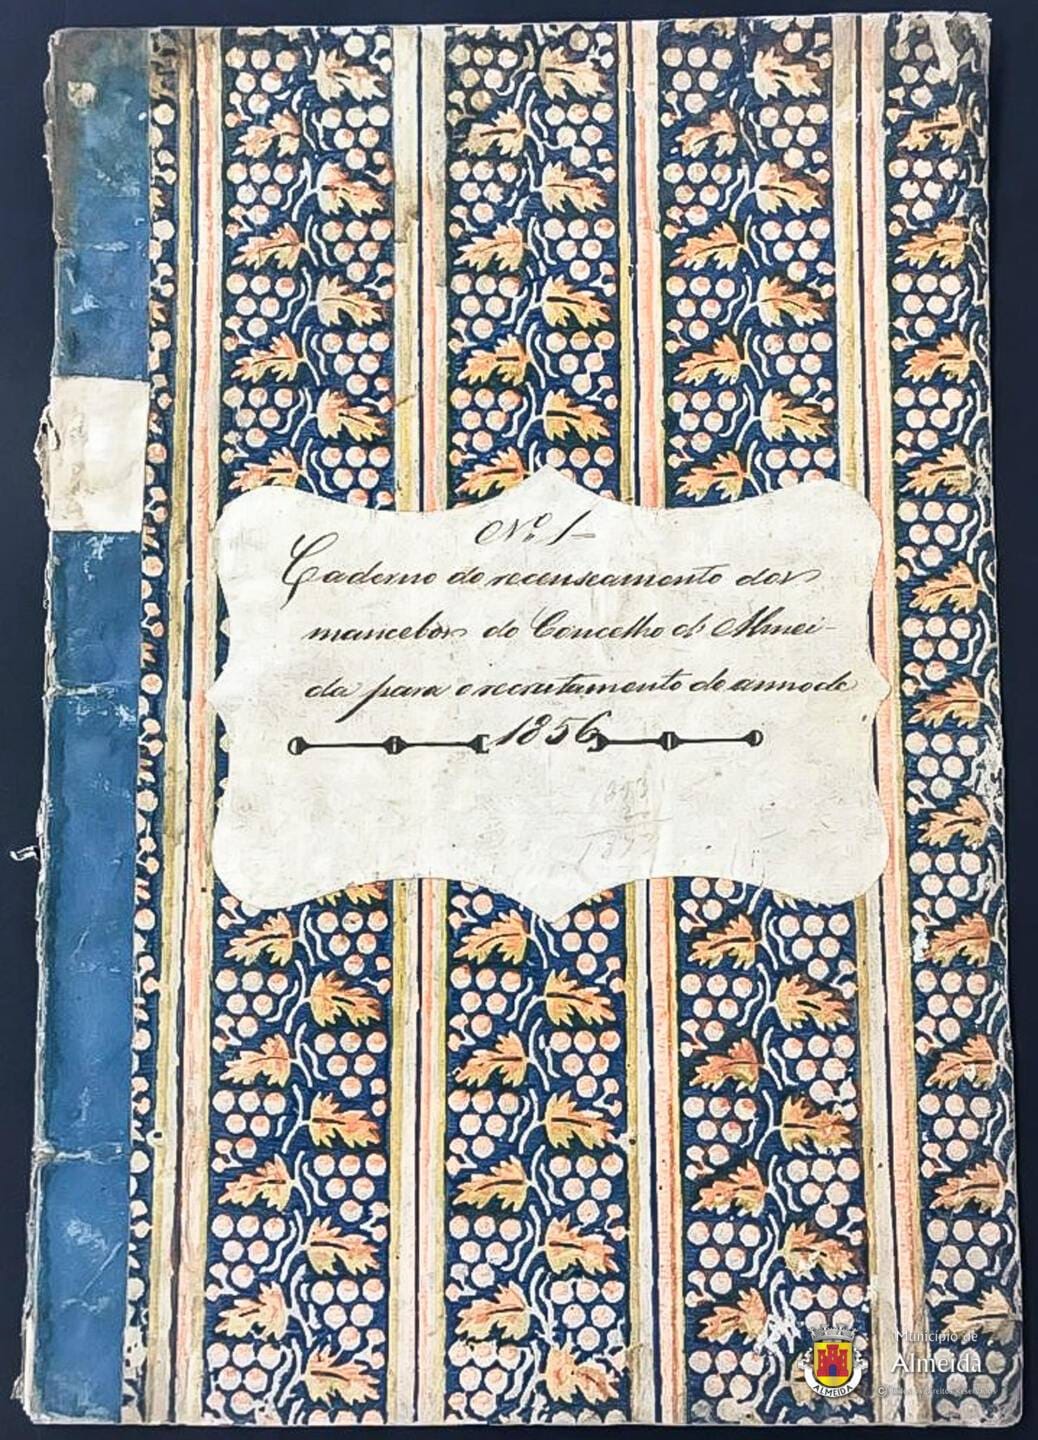 Nº 1
Caderno do recenseamento dos
mancebos do Concelho d'Almei-
da para o recrutamento do anno de
1856
Município de
Almeida
ALMEIDA